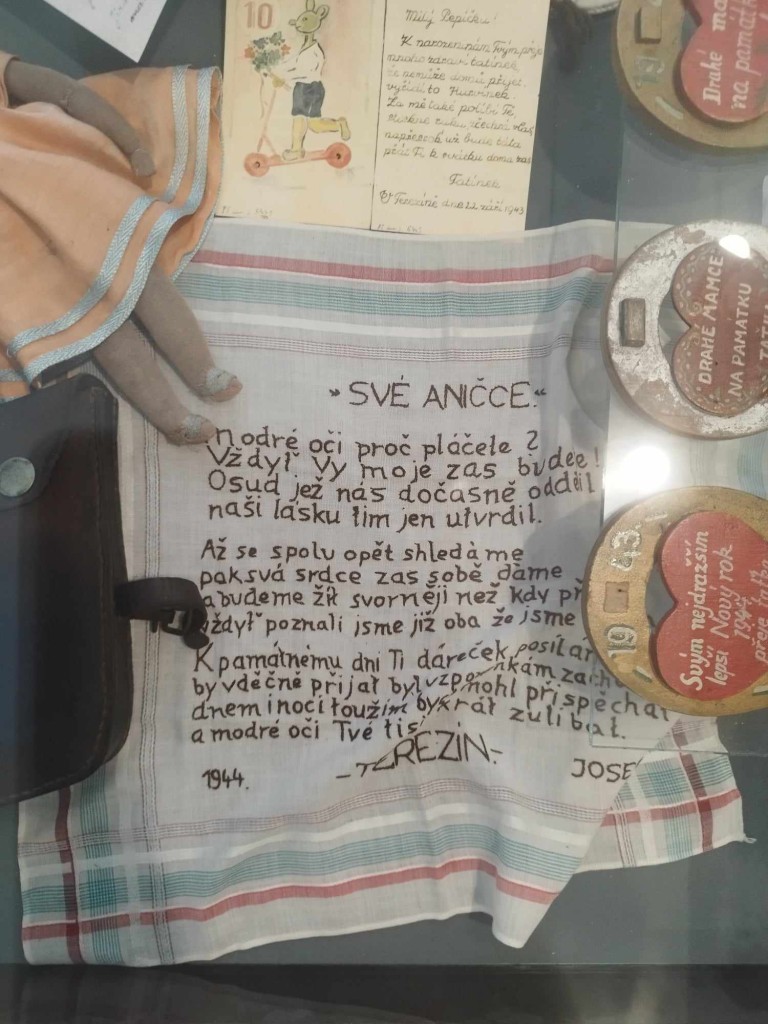 10
Milý Pepíčku!
K narozeninám Tvým přeje
mnoho zdraví tatínek
že nemůže domů přijet
vyřídí to Hurvínek.
Za mě také políbí Tě,
napřesrok už bude táta
přát Ti k svátku doma zas
Tatínek
V Terezíně dne 22 září 1943
Drahé
na památk
DRAHÉ MAMCE
NA PAMÁTKU
„SVÉ ANIČCE.“
Modré oči proč pláčete?
Vždyť Vy moje zas budee!
Osud jež nás dočasně oddělil
naši lásku tím jen utvrdil.
Až se spolu opět shledáme
pak svá srdce zas sobě dáme
a budeme žít svorněji než kdy př
vždyť poznali jsme již oba že jsme
K památnému dni Ti dáreček posílám
by vděčně přijat byl
mohl přispěchat
dnem i nocí toužím by
krát zulíbat.
a modré oči Tvé tis
-TEREZÍN-
1944.
JOSE
19 43.
Svým nejdražším
lepší Nový rok
1944
přeje